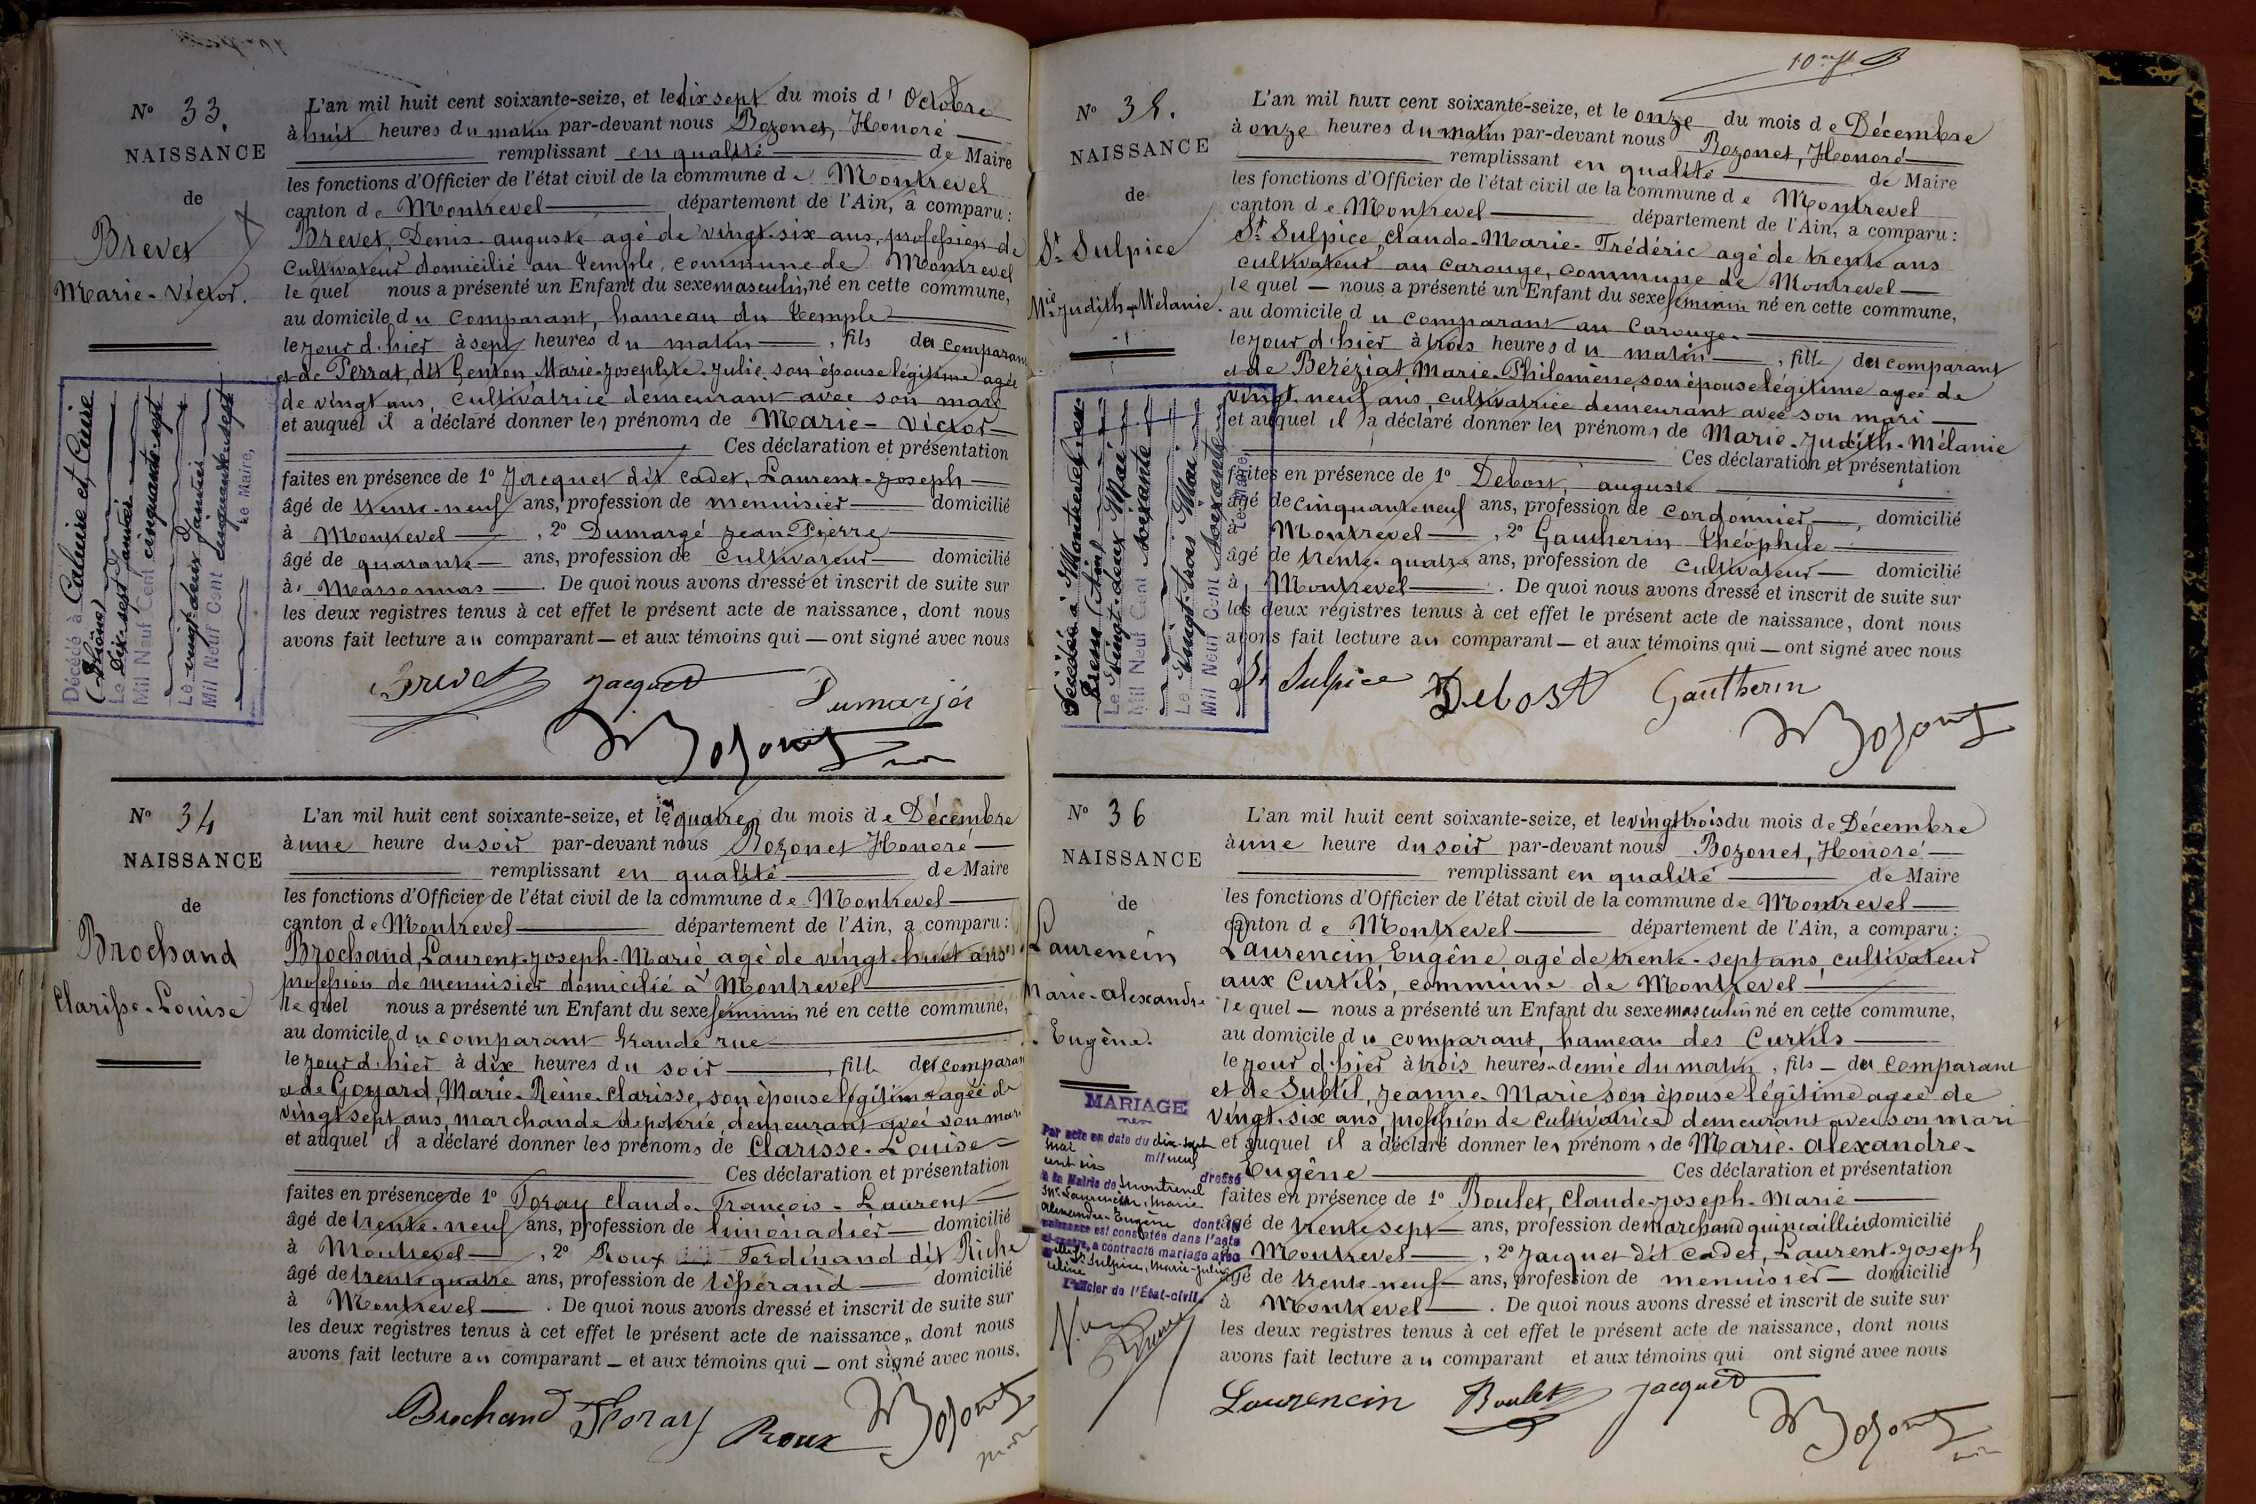 Nº 33.
NAISSANCE
de
Brevet
Marie-Victor.
L'an mil huit cent soixante-seize, et le dix sept du mois d'Octobre
à huit heures du matin par-devant nous Bozonet, Honoré
remplissant en qualité de Maire
les fonctions d'Officier de l'état civil de la commune de Montrevel
canton de Montrevel département de l'Ain, a comparu:
Brevet, Denis-auguste agé de vingt-six ans, profession de
Cultivateur domicilié au temple, commune de Montrevel
lequel nous a présenté un Enfant du sexe masculin, né en cette commune,
au domicile du comparant, hameau du temple
le jour d'hier à sept heures du matin, fils du comparant
et de Perrat, dit Genton, Marie-josephte-Julie, son épouse légitime agée
de vingt ans, cultivatrice demeurant avec son mari
et auquel il a déclaré donner les prénoms de Marie-Victor
Ces déclaration et présentation
faites en présence de 1º Jacquet dit cadet, Laurent-joseph
âgé de trente-neuf ans, profession de menuisier domicilié
à Montrevel, 2º Dumargé jean Pierre
âgé de quarante ans, profession de Cultivateur domicilié
à Marsonnas. De quoi nous avons dressé et inscrit de suite sur
les deux registres tenus à cet effet le présent acte de naissance, dont nous
avons fait lecture au comparant et aux témoins qui ont signé avec nous
Brevet jacquet
Bozonet
Décédé à Caluire et Cuire
(Rhône)
Le Dix sept Janvier
Mil Neuf Cent cinquante-sept
Le vingt-deux Janvier
Mil Neuf Cent cinquante-sept
Le Maire,
Nº 34
NAISSANCE
de
Brochand
Clarisse-Louise
L'an mil huit cent soixante-seize, et le quatre du mois de Décembre
à une heure du soir par-devant nous Bozonet Honoré
remplissant en qualité de Maire
les fonctions d'Officier de l'état civil de la commune de Montrevel
canton de Montrevel département de l'Ain, a comparu:
Brochand, Laurent-Joseph-Marie agé de vingt-huit ans
profession de menuisier domicilié à Montrevel
lequel nous a présenté un Enfant du sexe féminin né en cette commune,
au domicile du comparant Grande rue
le jour d'hier à dix heures du soir, fille du comparant
et de Goyard, Marie-Reine-Clarisse, son épouse légitime agée de
vingt sept ans, marchande de poterie, demeurant avec son mari
et auquel il a déclaré donner les prénoms de Clarisse-Louise
Ces déclaration et présentation
faites en présence de 1º Foray Claude-François-Laurent
âgé de trente-neuf ans, profession de limonadier domicilié
à Montrevel, 2º Roux Ferdinand dit Riche
âgé de trente quatre ans, profession de tisserand domicilié
à Montrevel. De quoi nous avons dressé et inscrit de suite sur
les deux registres tenus à cet effet le présent acte de naissance, dont nous
avons fait lecture au comparant et aux témoins qui ont signé avec nous.
Brochand Foray Roux Bozonet
Nº 35.
NAISSANCE
de
St Sulpice
Mie Judith-Mélanie.
L'an mil huit cent soixante-seize, et le onze du mois de Décembre
à onze heures du matin par-devant nous Bozonet, Honoré
remplissant en qualité de Maire
les fonctions d'Officier de l'état civil de la commune de Montrevel
canton de Montrevel département de l'Ain, a comparu:
St Sulpice, Claude-Marie-Frédéric agé de trente ans
cultivateur au Carouge, commune de Montrevel
lequel nous a présenté un Enfant du sexe féminin né en cette commune,
au domicile du comparant au Carouge
le jour d'hier à trois heures du matin, fille du comparant
et de Beréziat, Marie-Philomène, son épouse légitime agée de
vingt-neuf ans, cultivatrice demeurant avec son mari
et auquel il a déclaré donner les prénoms de Marie-Judith-Mélanie
Ces déclaration et présentation
faites en présence de 1º Debost, auguste
âgé de cinquante neuf ans, profession de cordonnier, domicilié
à Montrevel, 2º Gautherin Théophile
âgé de trente-quatre ans, profession de cultivateur domicilié
à Montrevel. De quoi nous avons dressé et inscrit de suite sur
les deux registres tenus à cet effet le présent acte de naissance, dont nous
avons fait lecture au comparant et aux témoins qui ont signé avec nous
St Sulpice Debost Gautherin
Bozonet
Décédée à Montrevel-en-
Bresse (Ain)
Le Vingt-deux Mai
Mil Neuf Cent Soixante
Le Vingt-trois Mai
Mil Neuf Cent Soixante
Le Maire,
Nº 36
NAISSANCE
de
Laurencin
Marie-Alexandre
Eugène.
L'an mil huit cent soixante-seize, et le vingt trois du mois de Décembre
à une heure du soir par-devant nous Bozonet, Honoré
remplissant en qualité de Maire
les fonctions d'Officier de l'état civil de la commune de Montrevel
canton de Montrevel département de l'Ain, a comparu:
Laurencin Eugène, agé de trente-sept ans, cultivateur
aux Curtils, commune de Montrevel
lequel nous a présenté un Enfant du sexe masculin né en cette commune,
au domicile du comparant, hameau des Curtils
le jour d'hier à trois heures-demie du matin, fils du comparant
et de Subtil, Jeanne-Marie son épouse légitime agée de
vingt-six ans, profession de cultivatrice demeurant avec son mari
et auquel il a déclaré donner les prénoms de Marie-Alexandre-
Eugène Ces déclaration et présentation
faites en présence de 1º Boulet, Claude-Joseph-Marie
âgé de trente sept ans, profession de marchand quincaillier domicilié
à Montrevel, 2º Jacquet dit Cadet, Laurent-Joseph
âgé de trente-neuf ans, profession de menuisier domicilié
à Montrevel. De quoi nous avons dressé et inscrit de suite sur
les deux registres tenus à cet effet le présent acte de naissance, dont nous
avons fait lecture au comparant et aux témoins qui ont signé avec nous
Laurencin Boulet jacquet Bozonet
MARIAGE
Par acte en date du dix-sept
mai mil neuf
cent six dressé
à la Mairie de Montrevel
Mr Laurencin, Marie
Alexandre-Eugène dont la
naissance est constatée dans l'acte
ci-contre, a contracté mariage avec
St Sulpice, Marie-Judith
L'officier de l'État-civil.